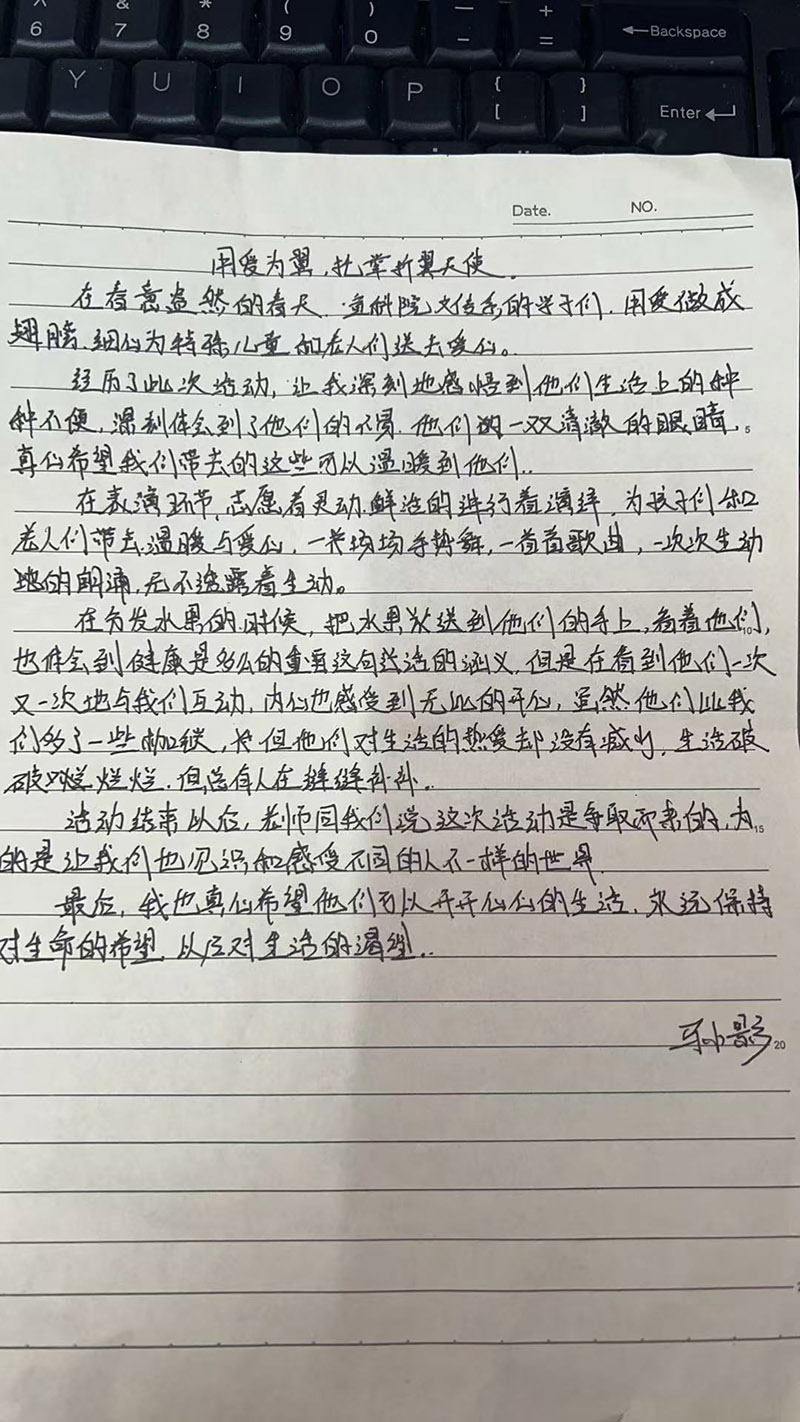 ^ & * ( ) — +
6 7 8 9 0 - = Backspace
Y U I O P { [ } ] Enter
Date. NO.
用爱为翼,托举折翼天使.
在春意盎然的春天.宜科院文传系的学子们.用爱做成
翅膀.细心为特殊儿童和老人们送去爱心。
经历了此次活动,让我深刻地感悟到他们生活上的种
种不便,深刻体会到了他们的不易.他们的一双清澈的眼睛. 5
真心希望我们带去的这些可以温暖到他们..
在表演环节,志愿者灵动.鲜活的进行着演绎,为孩子们和
老人们带去温暖与爱心,一场场手势舞,一首首歌曲,一次次生动
地的朗诵,无不透露着生动。
在分发水果的时候,把水果发送到他们的手上,看着他们, 10
也体会到健康是多么的重要这句话语的涵义,但是在看到他们一次
又一次地与我们互动,内心也感受到无比的开心,虽然他们比我
们多了一些枷锁,但他们对生活的热爱却没有减少,生活破
破烂烂.但总有人在缝缝补补..
活动结束以后,老师同我们说这次活动是争取而来的,为 15
的是让我们也见识和感受不同的人不一样的世界.
最后,我也真心希望他们可以开开心心的生活.永远保持
对生命的希望,以后对生活的渴望..
孙影 20